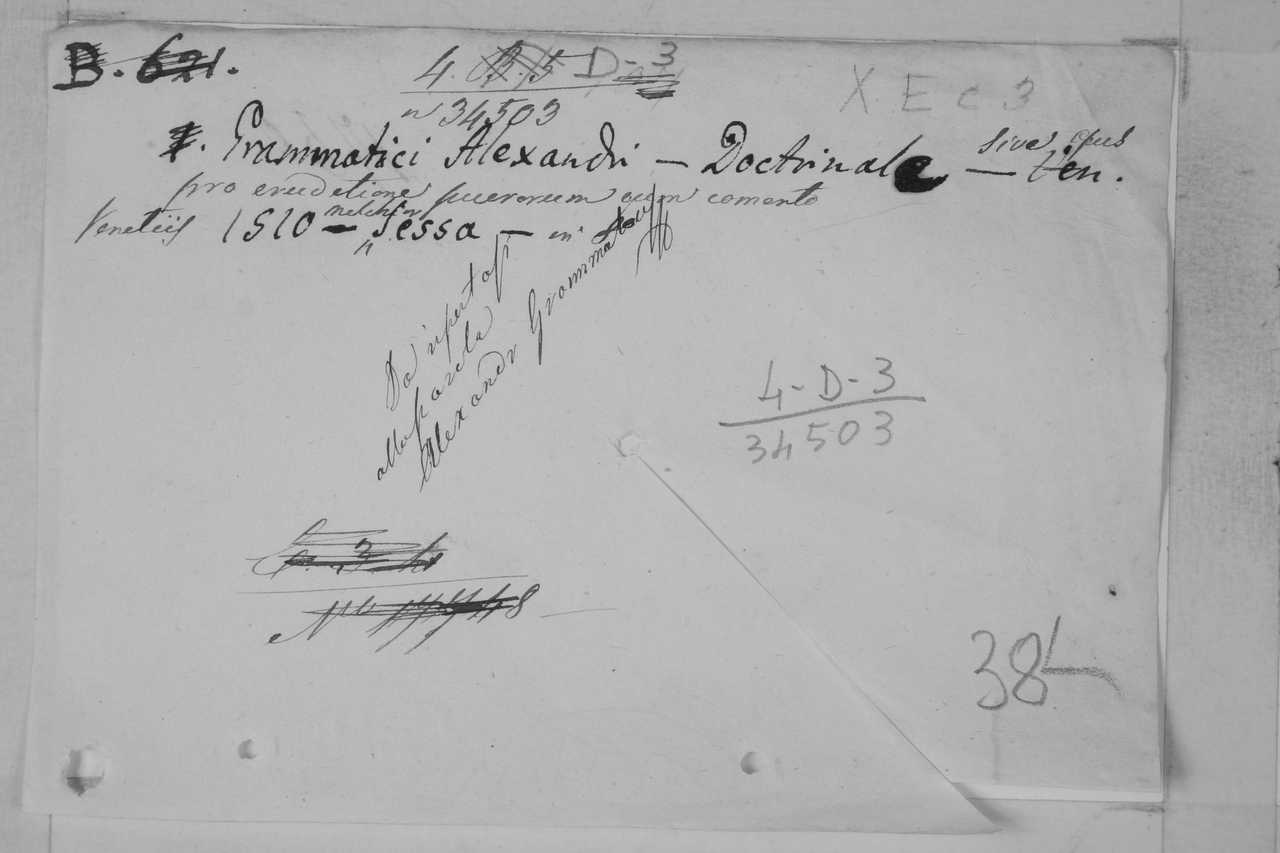 B. 621.
4. B. 5 D-3
X E c 3
n 34503
Grammatici Alexandri — Doctrinale — sive opus Ven.
pro erudetione puerorum cum comento
Venetiis 1510 — melchior Sessa — in
Da riportarsi
alla parola
Alexandr Grammaticus
4-D-3
34503
38